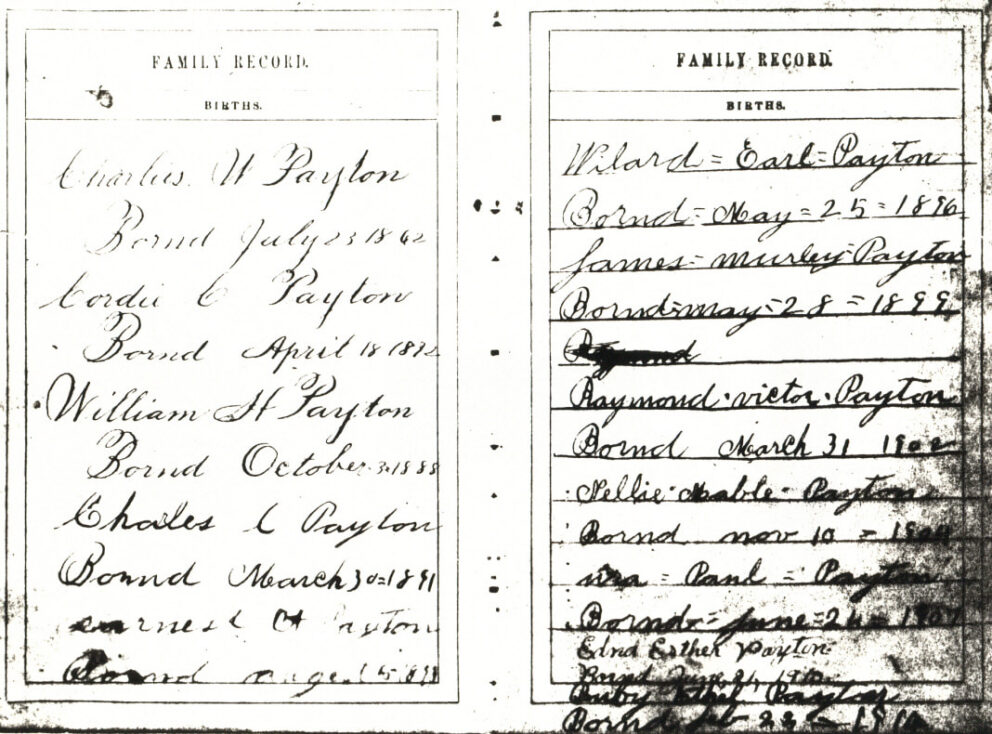 FAMILY RECORD.
BIRTHS.
Charlies W Payton
Bornd July 23 1862
Cordie C Payton
Bornd April 18 187
William H Payton
Bornd October 3 1888
Charles C Payton
Bornd March 30=1891
earnest H Payton
Bornd
FAMILY RECORD.
BIRTHS.
Wilard = Earl = Payton
Bornd = May = 25 = 1896
James = murley = Payton
Bornd = may = 28 = 1899
Raymond · victor · Payton
Bornd March 31 1902
Nellie · Mable · Payton
Bornd nov 10 =
Ira = Paul = Payton
Bornd = June = 26 = 1907
Edna Esther Payton
Bornd June 21,
Ruby Ethel Payton
Bornd feb 22